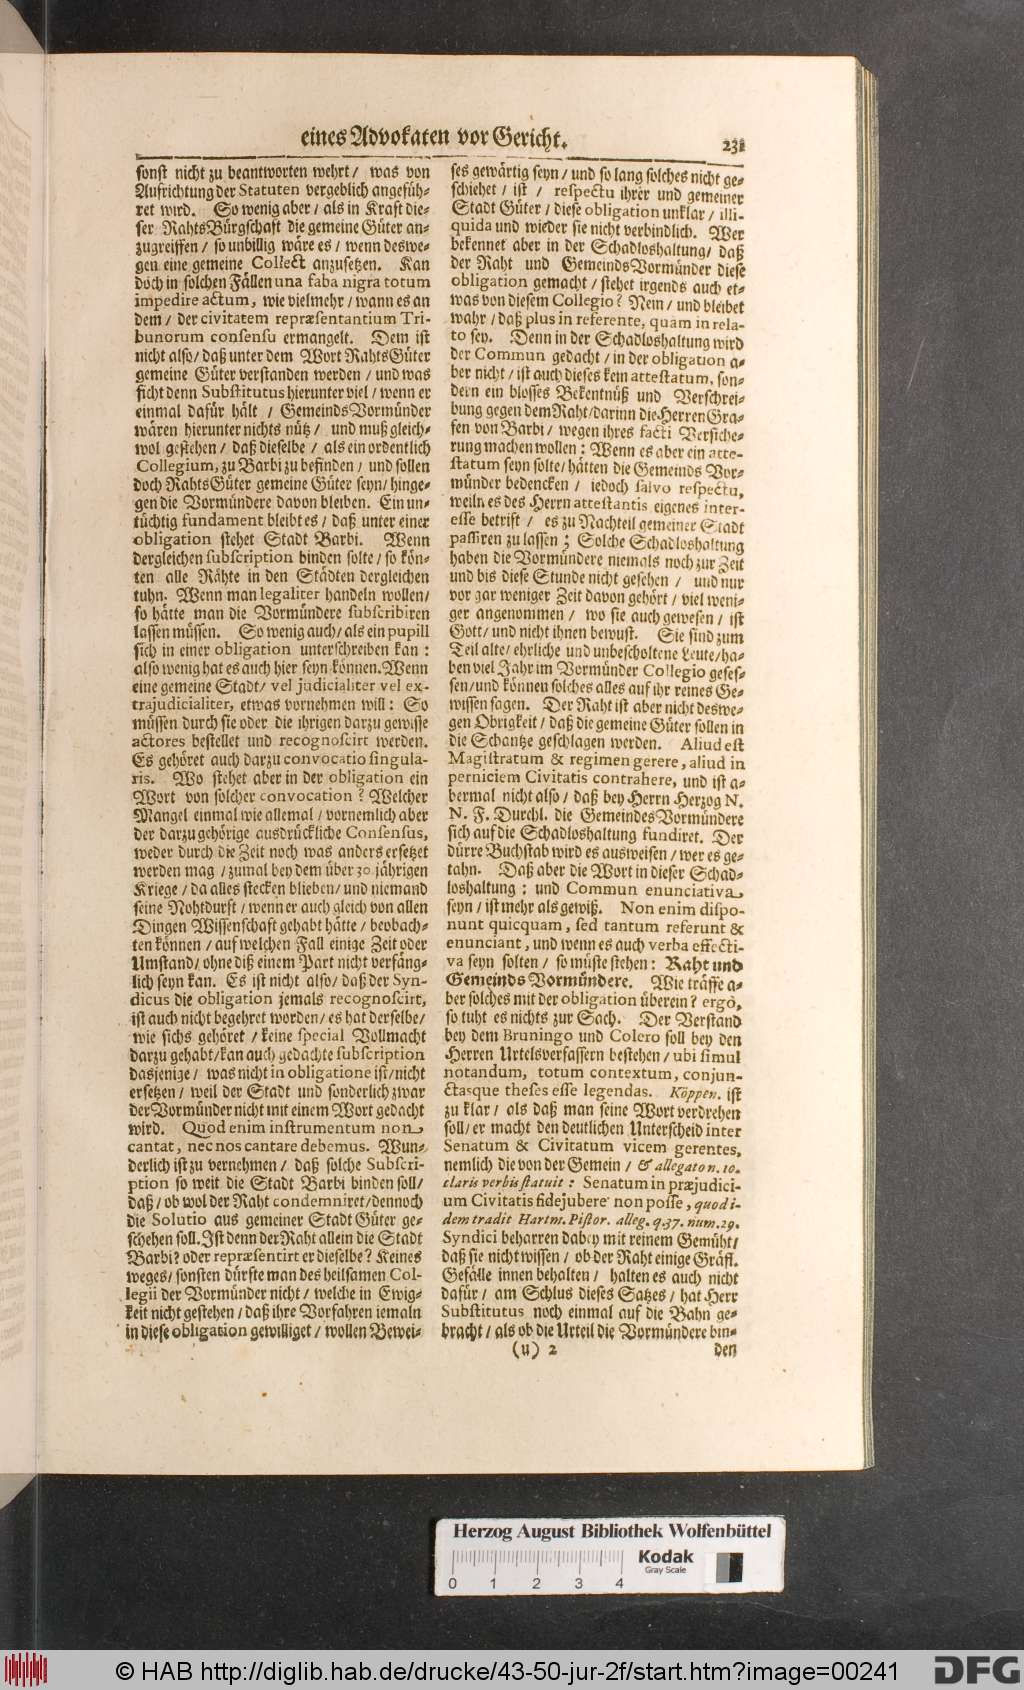 eines Advokaten vor Gericht.
231
sonst nicht zu beantworten wehrt/ was von
Aufrichtung der Statuten vergeblich angefüh-
ret wird. So wenig aber/ als in Kraft die-
ser RahtsBürgschaft die gemeine Güter an-
zugreiffen/ so unbillig wäre es/ wenn deswe-
gen eine gemeine Collect anzusetzen. Kan
doch in solchen Fällen una faba nigra totum
impedire actum, wie vielmehr/ wann es an
dem/ der civitatem repræsentantium Tri-
bunorum consensu ermangelt. Dem ist
nicht also/ daß unter dem Wort RahtsGüter
gemeine Güter verstanden werden/ und was
ficht denn Substitutus hierunter viel/ wenn er
einmal dafür hält/ GemeindsVormünder
wären hierunter nichts nütz/ und muß gleich-
wol gestehen/ daß dieselbe/ als ein ordentlich
Collegium, zu Barbi zu befinden/ und sollen
doch RahtsGüter gemeine Güter seyn/ hinge-
gen die Vormündere davon bleiben. Ein un-
tüchtig fundament bleibt es/ daß unter einer
obligation stehet Stadt Barbi. Wenn
dergleichen subscription binden solte/ so kön-
ten alle Rähte in den Städten dergleichen
tuhn. Wenn man legaliter handeln wollen/
so hätte man die Vormündere subscribiren
lassen müssen. So wenig auch/ als ein pupill
sich in einer obligation unterschreiben kan:
also wenig hat es auch hier seyn können. Wenn
eine gemeine Stadt/ vel judicialiter vel ex-
trajudicialiter, etwas vornehmen will: So
müssen durch sie oder die ihrigen darzu gewisse
actores bestellet und recognoscirt werden.
Es gehöret auch darzu convocatio singula-
ris. Wo stehet aber in der obligation ein
Wort von solcher convocation? Welcher
Mangel einmal wie allemal/ vornemlich aber
der darzu gehörige ausdrückliche Consensus,
weder durch die Zeit noch was anders ersetzet
werden mag/ zumal bey dem über 30 jährigen
Kriege/ da alles stecken blieben/ und niemand
seine Nohtdurft/ wenn er auch gleich von allen
Dingen Wissenschaft gehabt hätte/ beobach-
ten können/ auf welchen Fall einige Zeit oder
Umstand/ ohne diß einem Part nicht verfäng-
lich seyn kan. Es ist nicht also/ daß der Syn-
dicus die obligation jemals recognoscirt,
ist auch nicht begehret worden/ es hat derselbe/
wie sichs gehöret/ keine special Vollmacht
darzu gehabt/ kan auch gedachte subscription
dasjenige/ was nicht in obligatione ist/ nicht
ersetzen/ weil der Stadt und sonderlich zwar
der Vormünder nicht mit einem Wort gedacht
wird. Quod enim instrumentum non
cantat, nec nos cantare debemus. Wun-
derlich ist zu vernehmen/ daß solche Subscri-
ption so weit die Stadt Barbi binden soll/
daß/ ob wol der Raht condemniret/ dennoch
die Solutio aus gemeiner Stadt Güter ge-
schehen soll. Ist denn der Raht allein die Stadt
Barbi? oder repræsentirt er dieselbe? Keines
weges/ sonsten dürfte man des heilsamen Col-
legii der Vormünder nicht/ welche in Ewig-
keit nicht gestehen/ daß ihre Vorfahren iemaln
in diese obligation gewilliget/ wollen Bewei-
ses gewärtig seyn/ und so lang solches nicht ge-
schiehet/ ist/ respectu ihrer und gemeiner
Stadt Güter/ diese obligation unklar/ illi-
quida und wieder sie nicht verbindlich. Wer
bekennet aber in der Schadloshaltung/ daß
der Raht und GemeindsVormünder diese
obligation gemacht/ stehet irgends auch et-
was von diesem Collegio? Nein/ und bleibet
wahr/ daß plus in referente, quàm in rela-
to sey. Denn in der Schadloshaltung wird
der Commun gedacht/ in der obligation a-
ber nicht/ ist auch dieses kein attestatum, son-
dern ein blosses Bekentnüß und Verschrei-
bung gegen dem Raht/ darinn die Herren Gra-
fen von Barbi/ wegen ihres facti Versiche-
rung machen wollen: Wenn es aber ein atte-
statum seyn solte/ hätten die Gemeinds Vor-
münder bedencken/ iedoch salvo respectu,
weiln es des Herrn attestantis eigenes inter-
esse betrift/ es zu Nachteil gemeiner Stadt
passiren zu lassen; Solche Schadloshaltung
haben die Vormündere niemals noch zur Zeit
und bis diese Stunde nicht gesehen/ und nur
vor gar weniger Zeit davon gehört/ viel weni-
ger angenommen/ wo sie auch gewesen/ ist
Gott/ und nicht ihnen bewust. Sie sind zum
Teil alte/ ehrliche und unbescholtene Leute/ ha-
ben viel Jahr im Vormünder Collegio geses-
sen/ und können solches alles auf ihr reines Ge-
wissen sagen. Der Raht ist aber nicht deswe-
gen Obrigkeit/ daß die gemeine Güter sollen in
die Schantze geschlagen werden. Aliud est
Magistratum & regimen gerere, aliud in
perniciem Civitatis contrahere, und ist a-
bermal nicht also/ daß bey Herrn Herzog N.
N. F. Durchl. die GemeindesVormündere
sich auf die Schadloshaltung fundiret. Der
dürre Buchstab wird es ausweisen/ wer es ge-
tahn. Daß aber die Wort in dieser Schad-
loshaltung: und Commun enunciativa
seyn/ ist mehr als gewiß. Non enim dispo-
nunt quicquam, sed tantum referunt &
enunciant, und wenn es auch verba effecti-
va seyn solten/ so müste stehen: Raht und
Gemeinds Vormündere. Wie träffe a-
ber solches mit der obligation überein? ergò,
so tuht es nichts zur Sach. Der Verstand
bey dem Bruningo und Colero soll bey den
Herren Urtelsverfassern bestehen/ ubi simul
notandum, totum contextum, conjun-
ctasque theses esse legendas. Köppen. ist
zu klar/ als daß man seine Wort verdrehen
soll/ er macht den deutlichen Unterscheid inter
Senatum & Civitatum vicem gerentes,
nemlich die von der Gemein/ & allegato n. 10.
claris verbis statuit: Senatum in præjudici-
um Civitatis fidejubere non posse, quod i-
dem tradit Hartm. Pistor. alleg. q. 37. num. 29.
Syndici beharren dabey mit reinem Gemüht/
daß sie nicht wissen/ ob der Raht einige Gräfl.
Gefälle innen behalten/ halten es auch nicht
dafür/ am Schlus dieses Satzes/ hat Herr
Substitutus noch einmal auf die Bahn ge-
bracht/ als ob die Urteil die Vormündere bin-
(u) 2
den
Herzog August Bibliothek Wolfenbüttel
Kodak
Gray Scale
0 1 2 3 4
© HAB http://diglib.hab.de/drucke/43-50-jur-2f/start.htm?image=00241
DFG